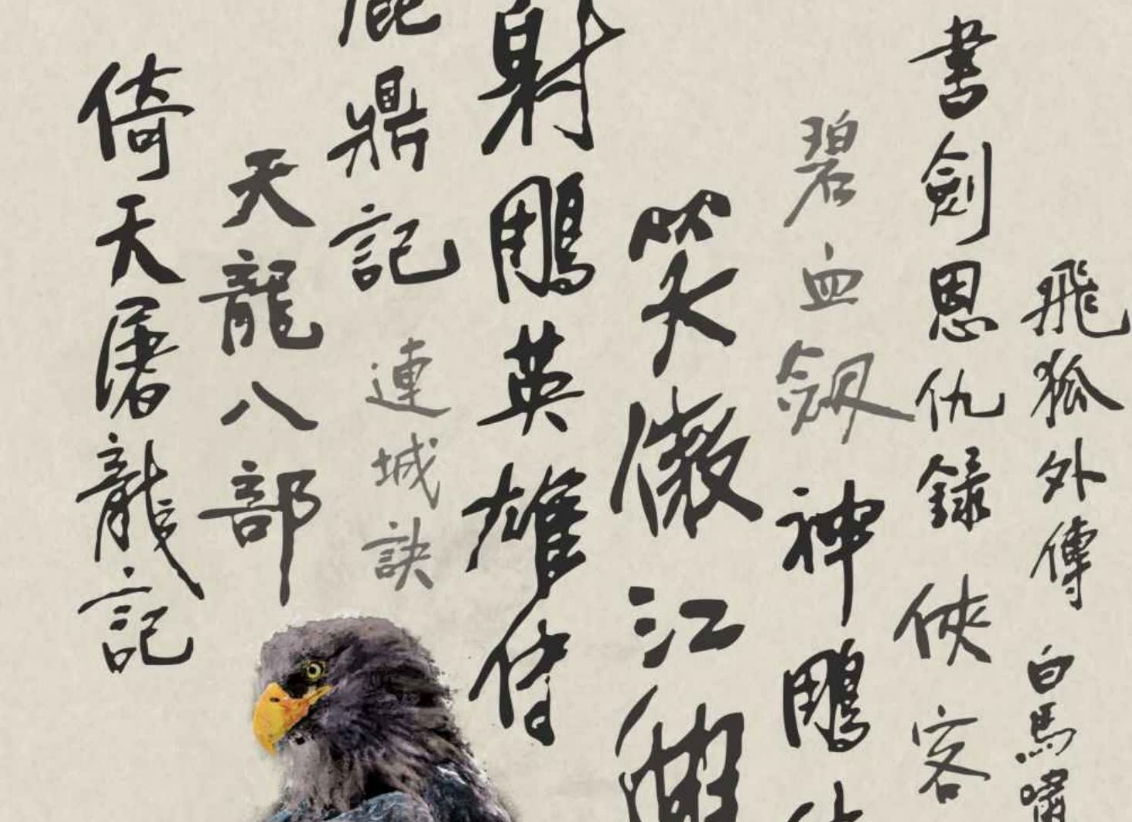 飛狐外傳
白馬嘯
書劍恩仇錄
俠客
碧血劔
神鵰
笑傲江湖
射鵰英雄傳
鹿鼎記
連城訣
天龍八部
倚天屠龍記